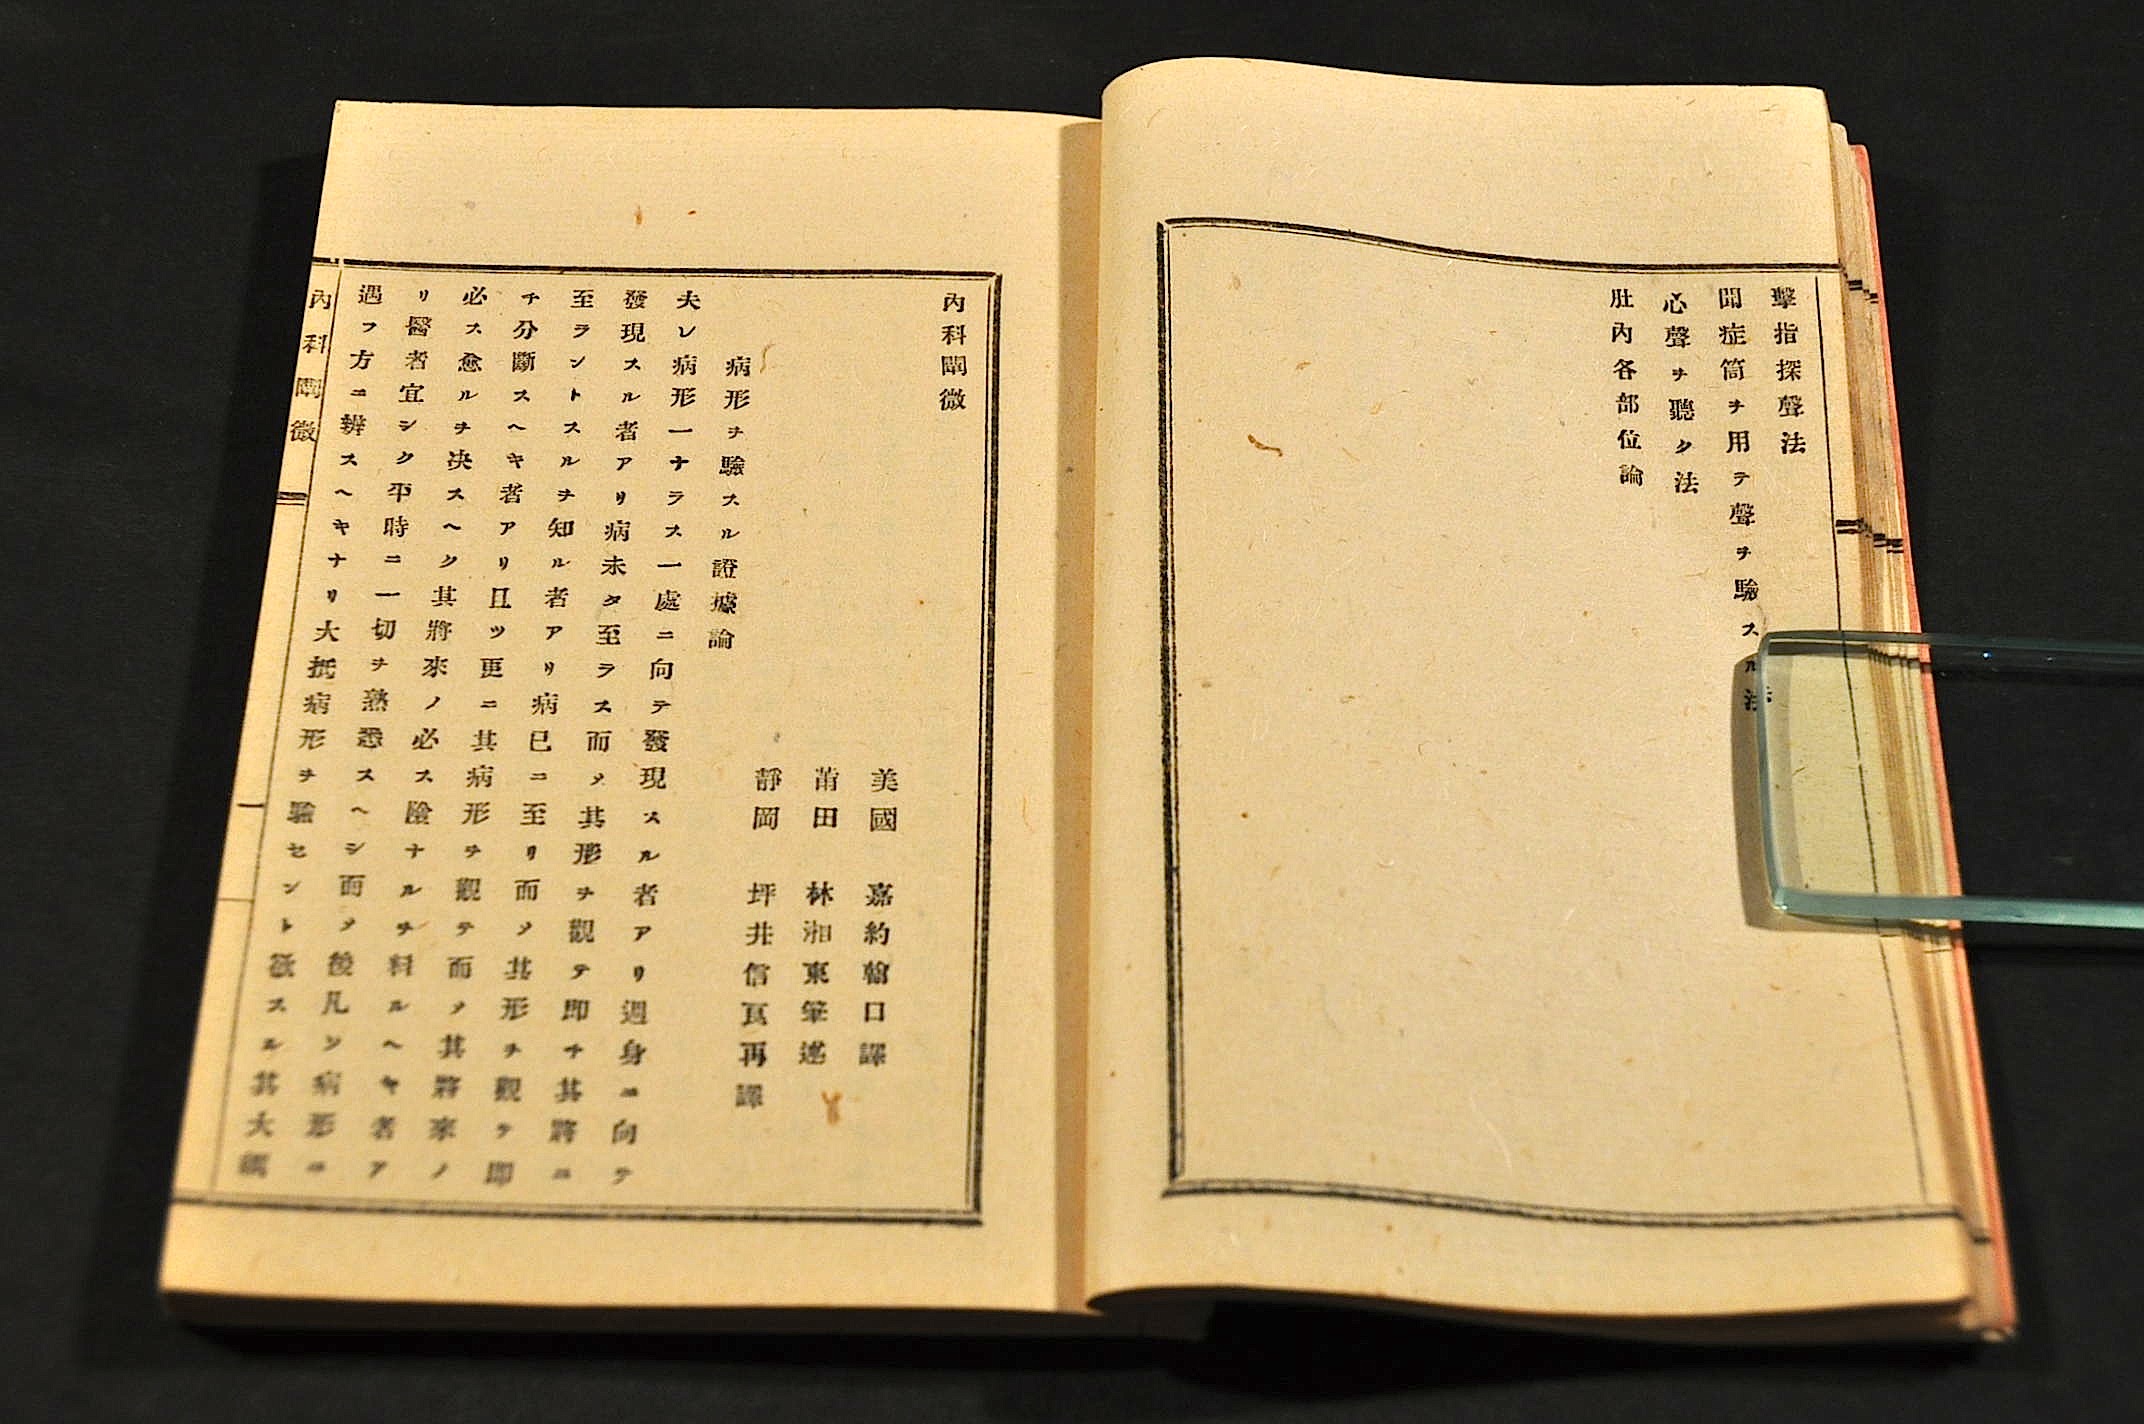 擊指探聲法
聞症筒ヲ用テ聲ヲ驗スル法
心聲ヲ聽ク法
肚內各部位論
內科闡微
美國 嘉約翰口譯
莆田 林湘東筆述
靜岡 坪井信良再譯
病形ヲ驗スル證據論
夫レ病形一ナラス一處ニ向テ發現スル者アリ週身ニ向テ
發現スル者アリ病未タ至ラス而メ其形ヲ觀テ即チ其將ニ
至ラントスルヲ知ル者アリ病已ニ至リ而メ其形ヲ觀テ即
チ分斷スヘキ者アリ且ツ更ニ其病形ヲ觀テ而メ其將來ノ
必ス愈ルヲ决スヘク其將來ノ必ス險ナルヲ料ルヘキ者ア
リ醫者宜シク平時ニ一切ヲ熟悉スヘシ而メ後凡ソ病形ニ
遇フ方ニ辨スヘキナリ大抵病形ヲ驗セント欲スル其大綱
內科闡微
一